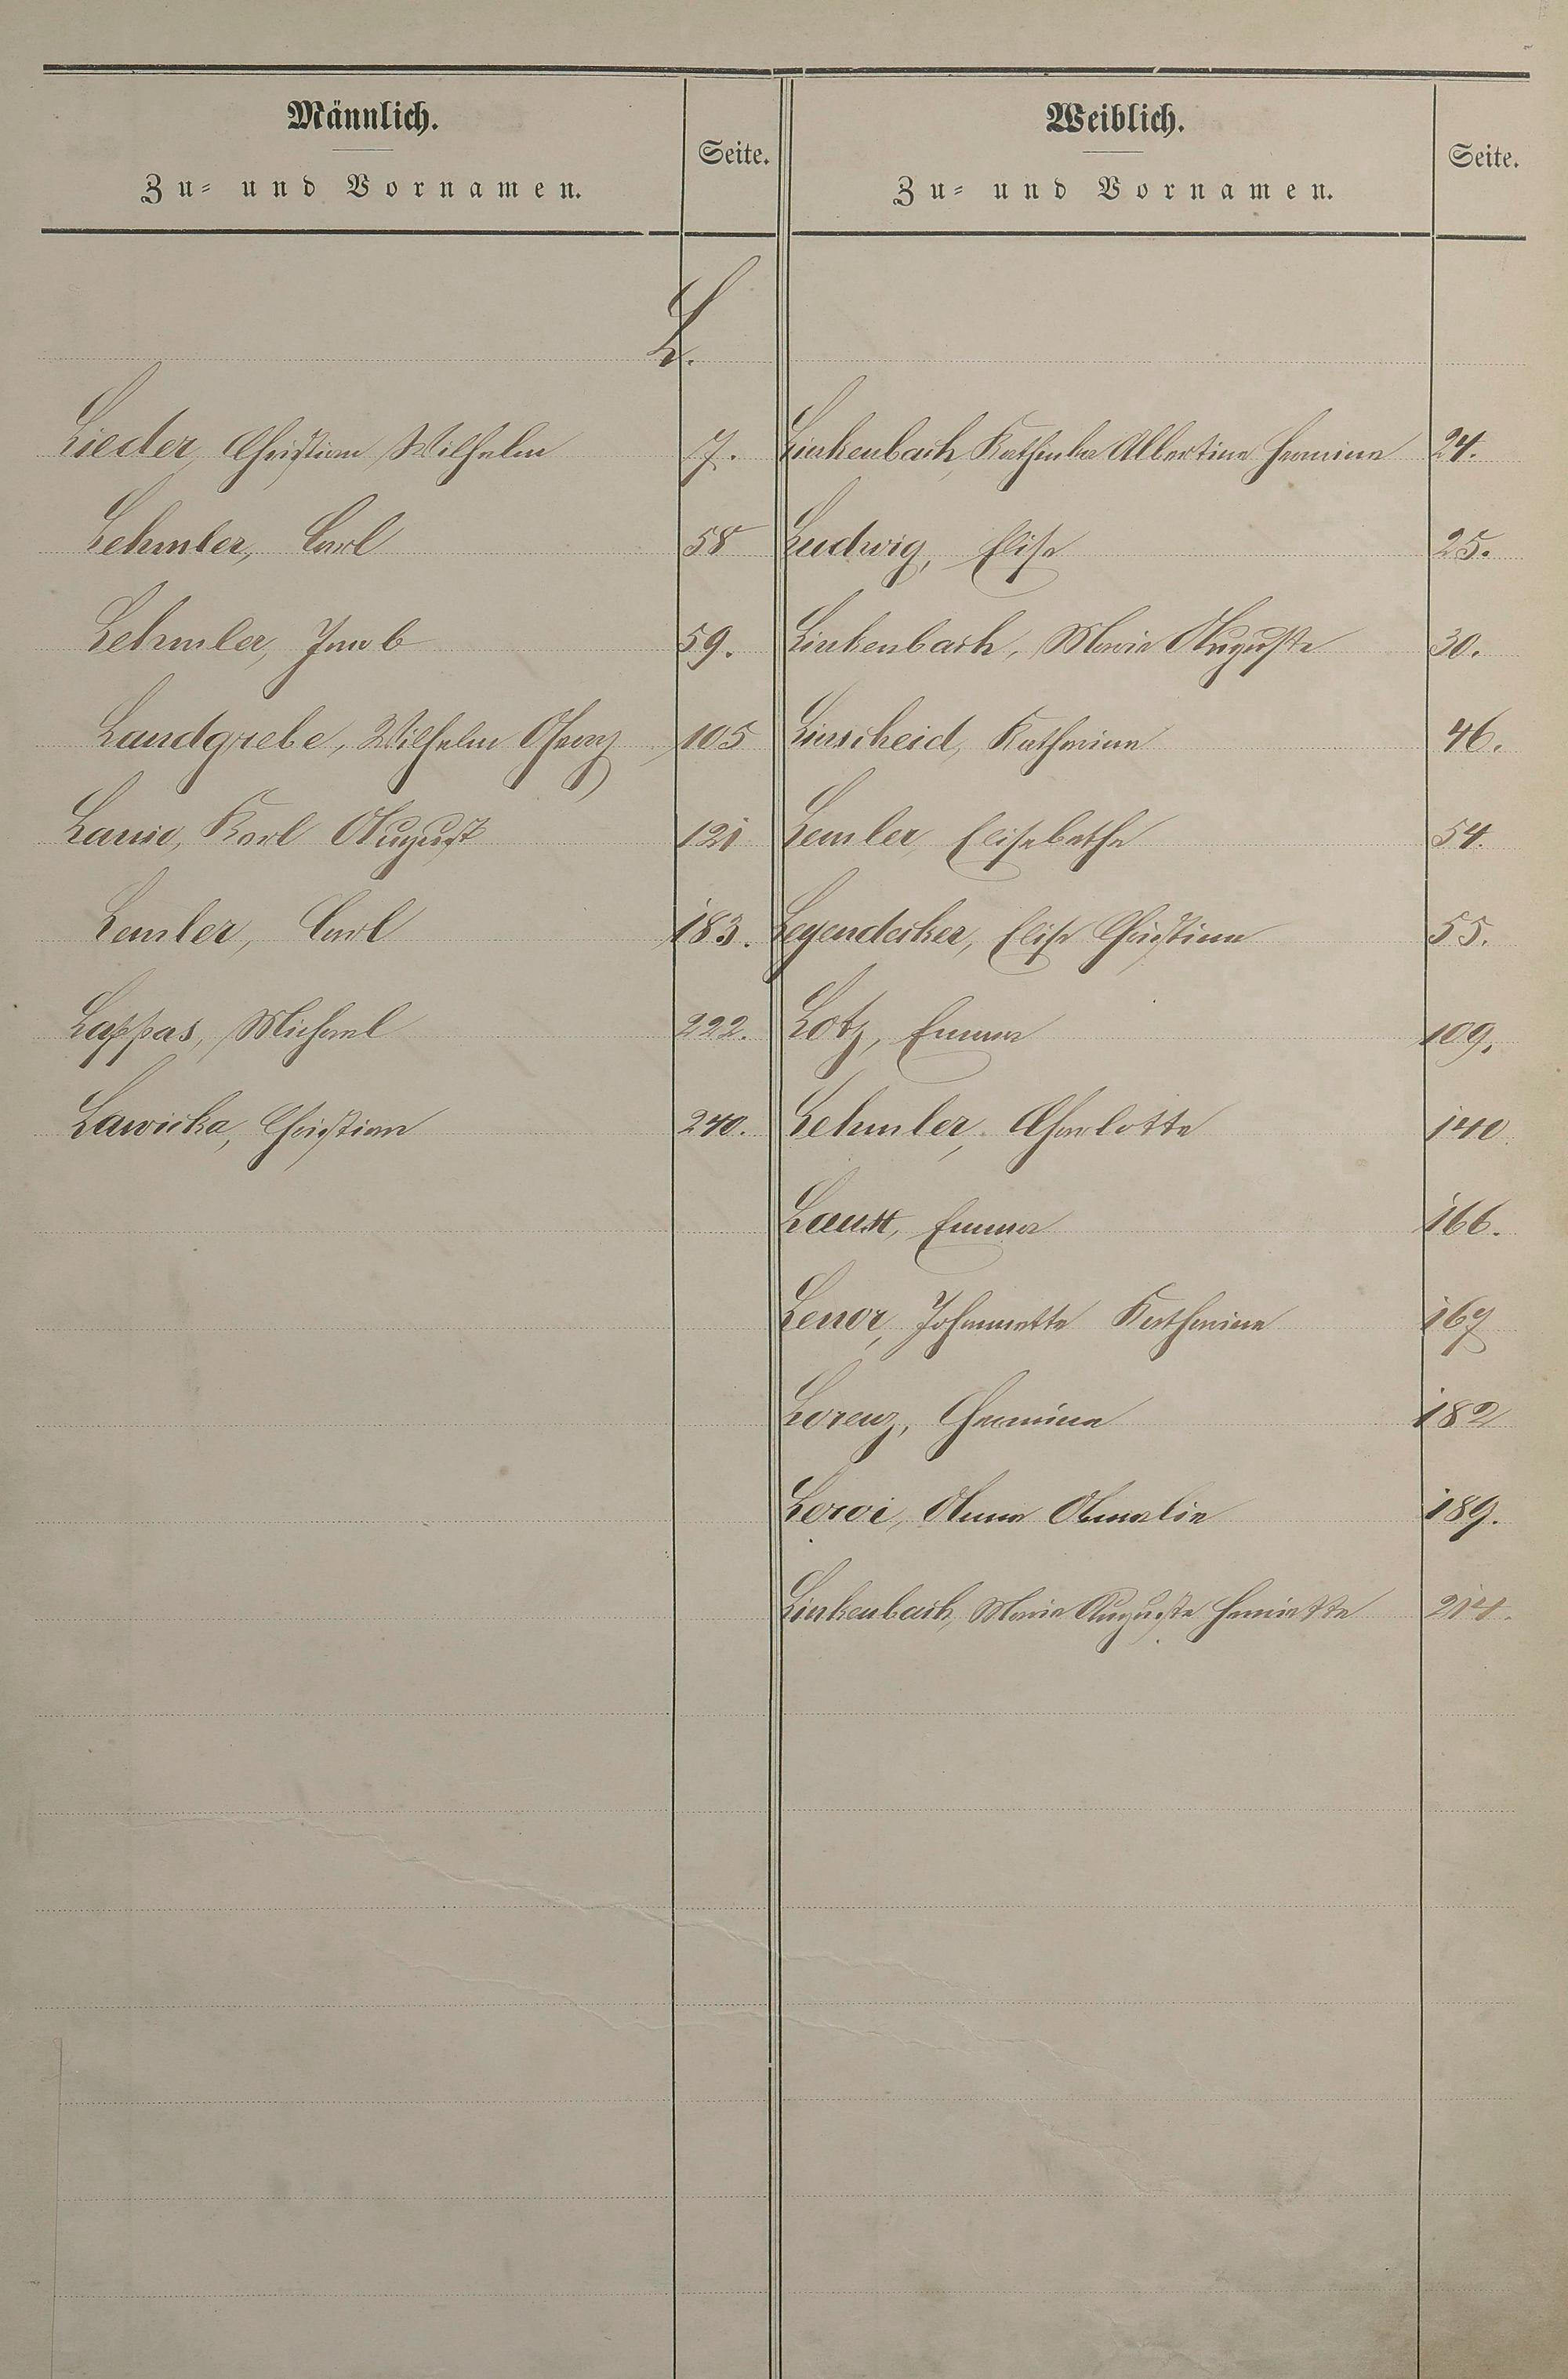 Männlich.
Zu- und Vornamen.
Seite.
Weiblich.
Zu- und Vornamen.
Seite.
L.
Lieder, Christian Wilhelm 7.
Lehmler, Carl 58
Lehmler, Jacob 59.
Landgrebe, Wilhelm Georg 105
Karl August 121
Lemler, Carl 183.
Lappas, Michael 222.
Lawicka, Christian 240.
Linkenbach, Kathinka Albertine Hermine 24.
Ludwig, Elise 25.
Linkenbach, Marie Auguste 30.
Linscheid, Katharine 46.
Lemler, Elisabethe 54.
Legendecker, Elise Christine 55.
Lotz, Emma 109.
Lehmler, Charlotte 140
Emma 166.
Johannette Katharine 167
Lorenz, Hermine 182
Anna Amalie 189.
Linkenbach, Marie Auguste Henriette 214.